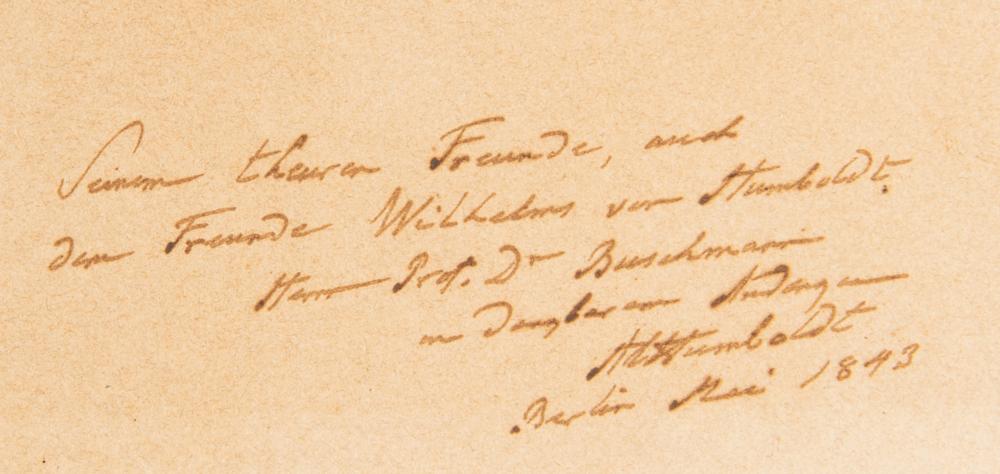 Seinem theuren Freunde, auch
dem Freunde Wilhelms von Humboldt.
Herrn Prof. Dr Buschmann
in dankbarem Andenken
AlHumboldt
Berlin Mai 1843